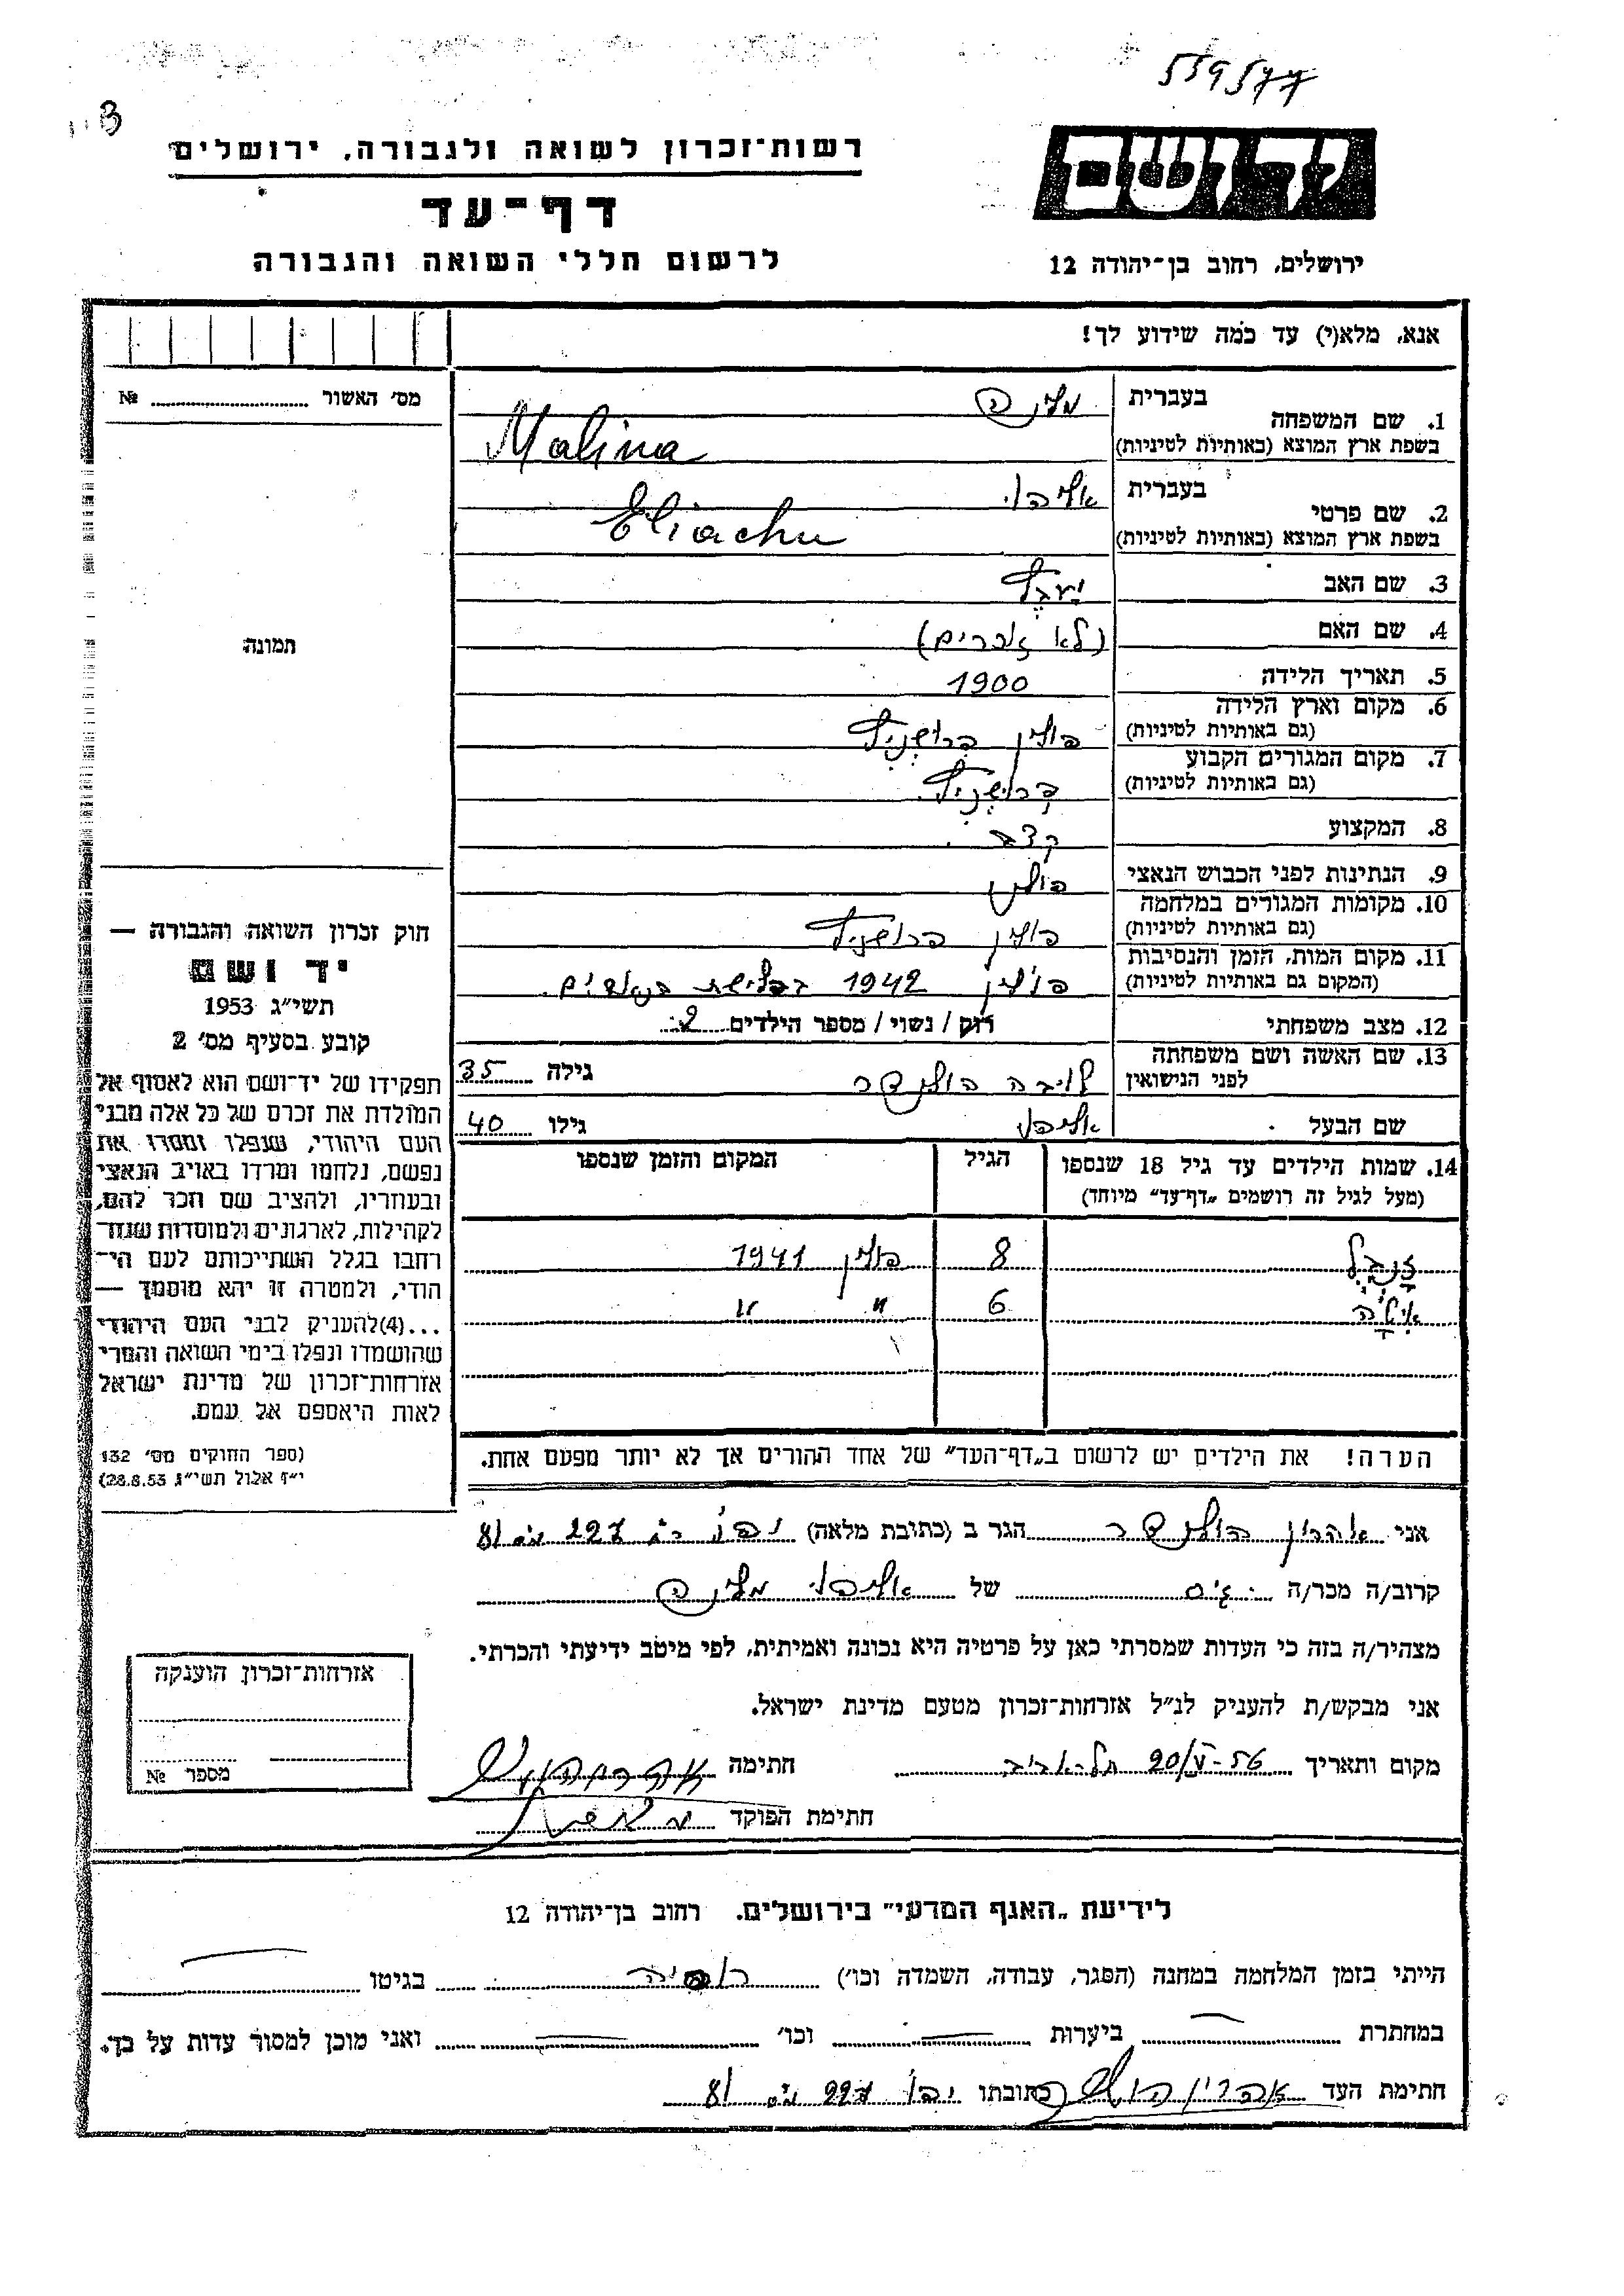 559577
יד ושם
רשות־זכרון לשואה ולגבורה, ירושלים
דף־עד
לרשום חללי השואה והגבורה
ירושלים, רחוב בן־יהודה 12
אנא, מלא(י) עד כמה שידוע לך!
מס׳ האשור № 
1. שם המשפחה בעברית מלינה
בשפת ארץ המוצא (באותיות לטיניות) Malina
2. שם פרטי בעברית אליהו
בשפת ארץ המוצא (באותיות לטיניות) Eliachu
3. שם האב
4. שם האם (לא זוכרים)
5. תאריך הלידה 1900
6. מקום וארץ הלידה פולין
(גם באותיות לטיניות)
7. מקום המגורים הקבוע
(גם באותיות לטיניות)
8. המקצוע קצב
9. הנתינות לפני הכבוש הנאצי פולין
10. מקומות המגורים במלחמה פולין
(גם באותיות לטיניות)
11. מקום המות, הזמן והנסיבות פולין 1942
(המקום גם באותיות לטיניות)
12. מצב משפחתי רוק / נשוי / מספר הילדים 2
13. שם האשה ושם משפחתה הולנדר גילה 35
לפני הנישואין
שם הבעל אליהו גילו 40
14. שמות הילדים עד גיל 18 שנספו הגיל המקום והזמן שנספו
(מעל לגיל זה רושמים „דף־עד״ מיוחד)
8 פולין 1941
6 " "
הערה! את הילדים יש לרשום ב„דף־העד״ של אחד ההורים אך לא יותר מפעם אחת.
תמונה
חוק זכרון השואה והגבורה —
יד ושם
תשי״ג 1953
קובע בסעיף מס׳ 2
תפקידו של יד־ושם הוא לאסוף אל
המולדת את זכרם של כל אלה מבני
העם היהודי, שנפלו ומסרו את
נפשם, נלחמו ומרדו באויב הנאצי
ובעוזריו, ולהציב שם וזכר להם,
לקהילות, לארגונים ולמוסדות שנח־
רבו בגלל השתייכותם לעם הי־
הודי, ולמטרה זו יהא מוסמך —
...(4) להעניק לבני העם היהודי
שהושמדו ונפלו בימי השואה והמרי
אזרחות־זכרון של מדינת ישראל
לאות היאספם אל עמם.
(ספר החוקים מס׳ 132
י״ז אלול תשי״ג 28.8.53)
אני אהרון הולנדר הגר ב (כתובת מלאה) יפו
קרוב/ה מכר/ה גיס של אליהו מלינה
מצהיר/ה בזה כי העדות שמסרתי כאן על פרטיה היא נכונה ואמיתית, לפי מיטב ידיעתי והכרתי.
אני מבקש/ת להעניק לנ״ל אזרחות־זכרון מטעם מדינת ישראל.
מקום ותאריך 20/V-56 תל־אביב חתימה
חתימת הפוקד
אזרחות־זכרון הוענקה
מספר №
לידיעת „האגף המדעי״ בירושלים, רחוב בן־יהודה 12
הייתי בזמן המלחמה במחנה (הסגר, עבודה, השמדה וכו׳) רוסיה בגיטו
במחתרת ביערות וכו׳ ואני מוכן למסור עדות על כך.
חתימת העד אהרון כתובתו יפו